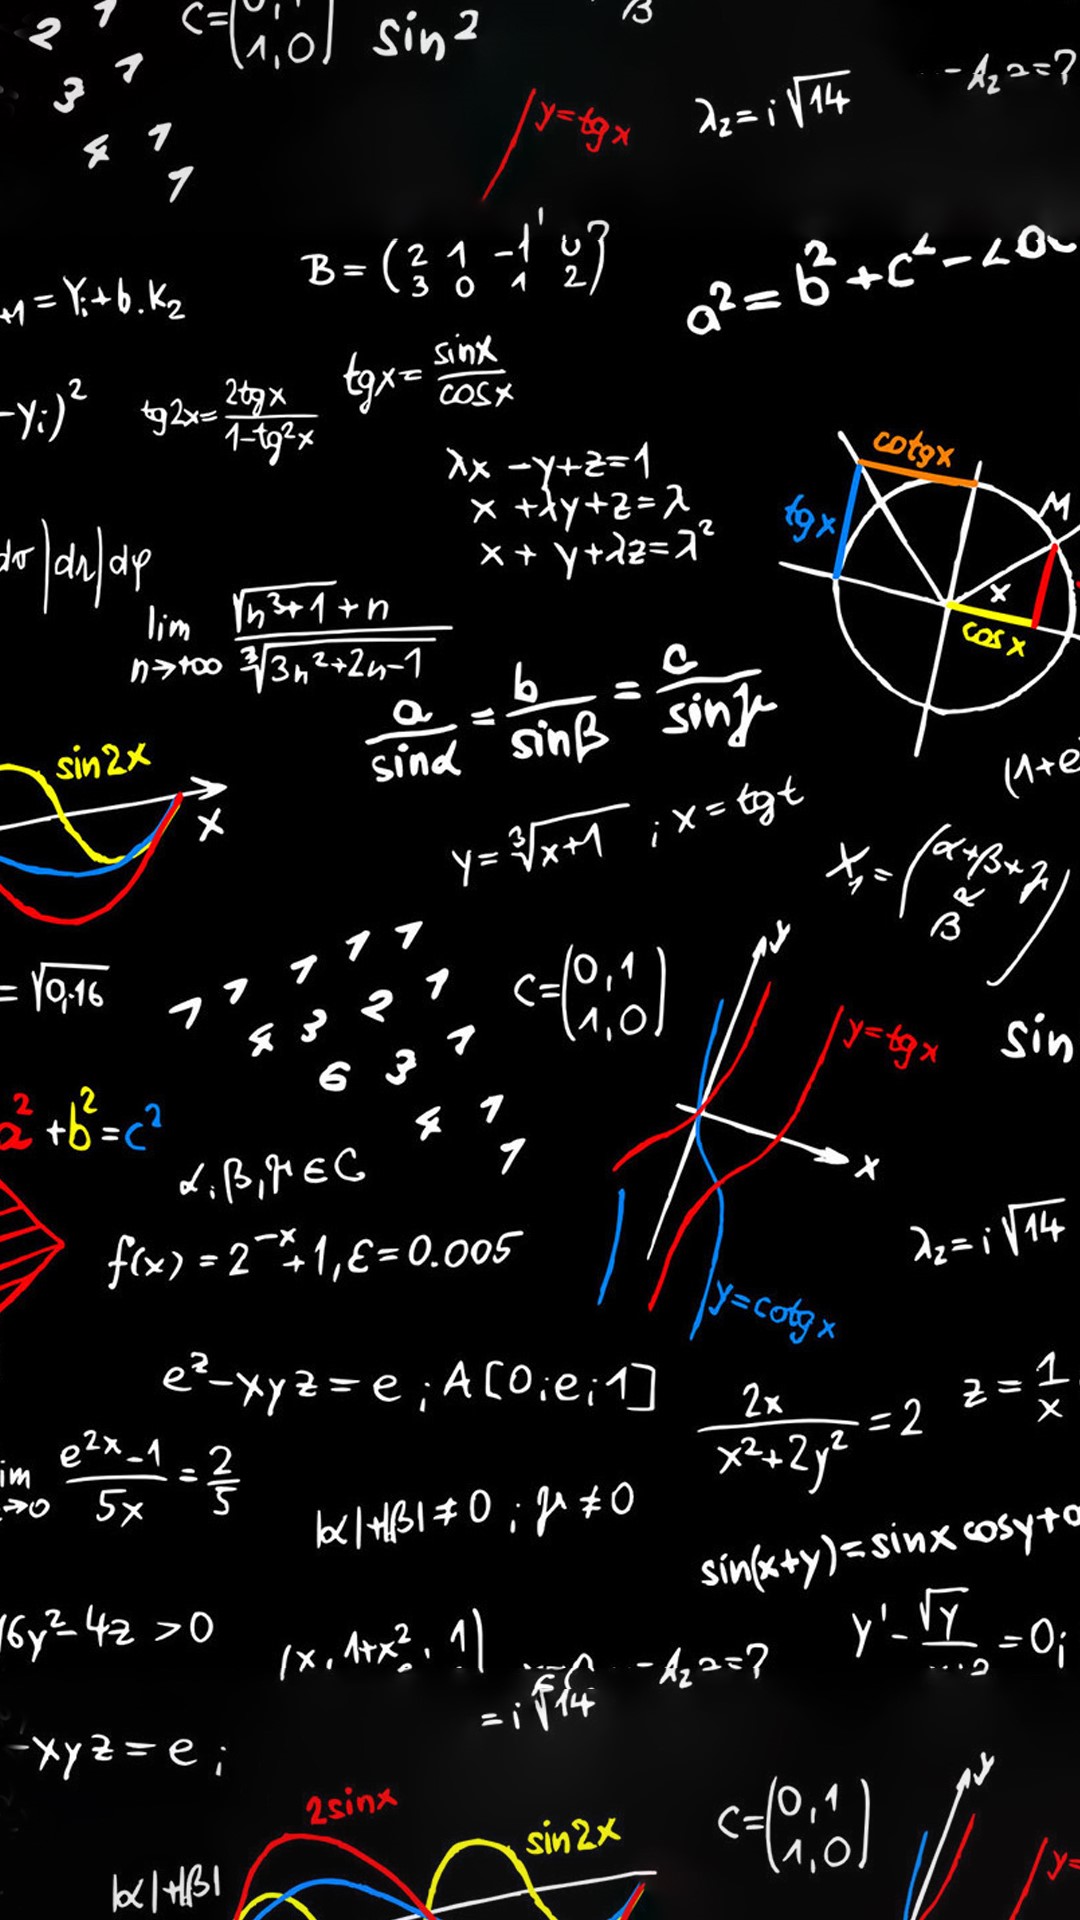 2 1
3 1
4 1
1
C=(0,1
1,0)
sin2
β
y=tgx
λ₂=i√14
-λ₂ 2=?
B=(2 1 -1 0
3 0 1 2)
a²=b²+c²-2
+1=Yi+b.K₂
-Yi)²
tg2x=2tgx/1-tg²x
tgx=sinx/cosx
λx-y+z=1
x+λy+z=λ
x+y+λz=λ²
cotgx
tgx
M
x
cosx
|dφ
lim n→+∞ √n³+1+n/∛3n²+2n-1
a/sinα=b/sinβ=c/sinγ
sin2x
x
(1+e
y=∛x+1 ; x=tgt
X₁=(α+β+γ
β
=√0,16
1 1 1 1 1
4 3 2 1
6 3 1
4 1
1
C=(0,1
1,0)
y
y=tgx
x
y=cotgx
sin
a²+b²=c²
α,β,γ∈C
f(x)=2⁻ˣ+1,ε=0.005
λ₂=i√14
eᶻ-xyz=e;A[0;e;1]
2x/x²+2y²=2
z=1/x
im →0 e²ˣ-1/5x=2/5
|α|+|β|≠0;γ≠0
sin(x+y)=sinxcosy+
6y²-4z>0
(x,1+x²,1)
-λ₂ 2=?
=i√14
y'-√y/ =0;
-xyz=e;
2sinx
sin2x
C=(0,1
1,0)
y
y=
|α|+|β|